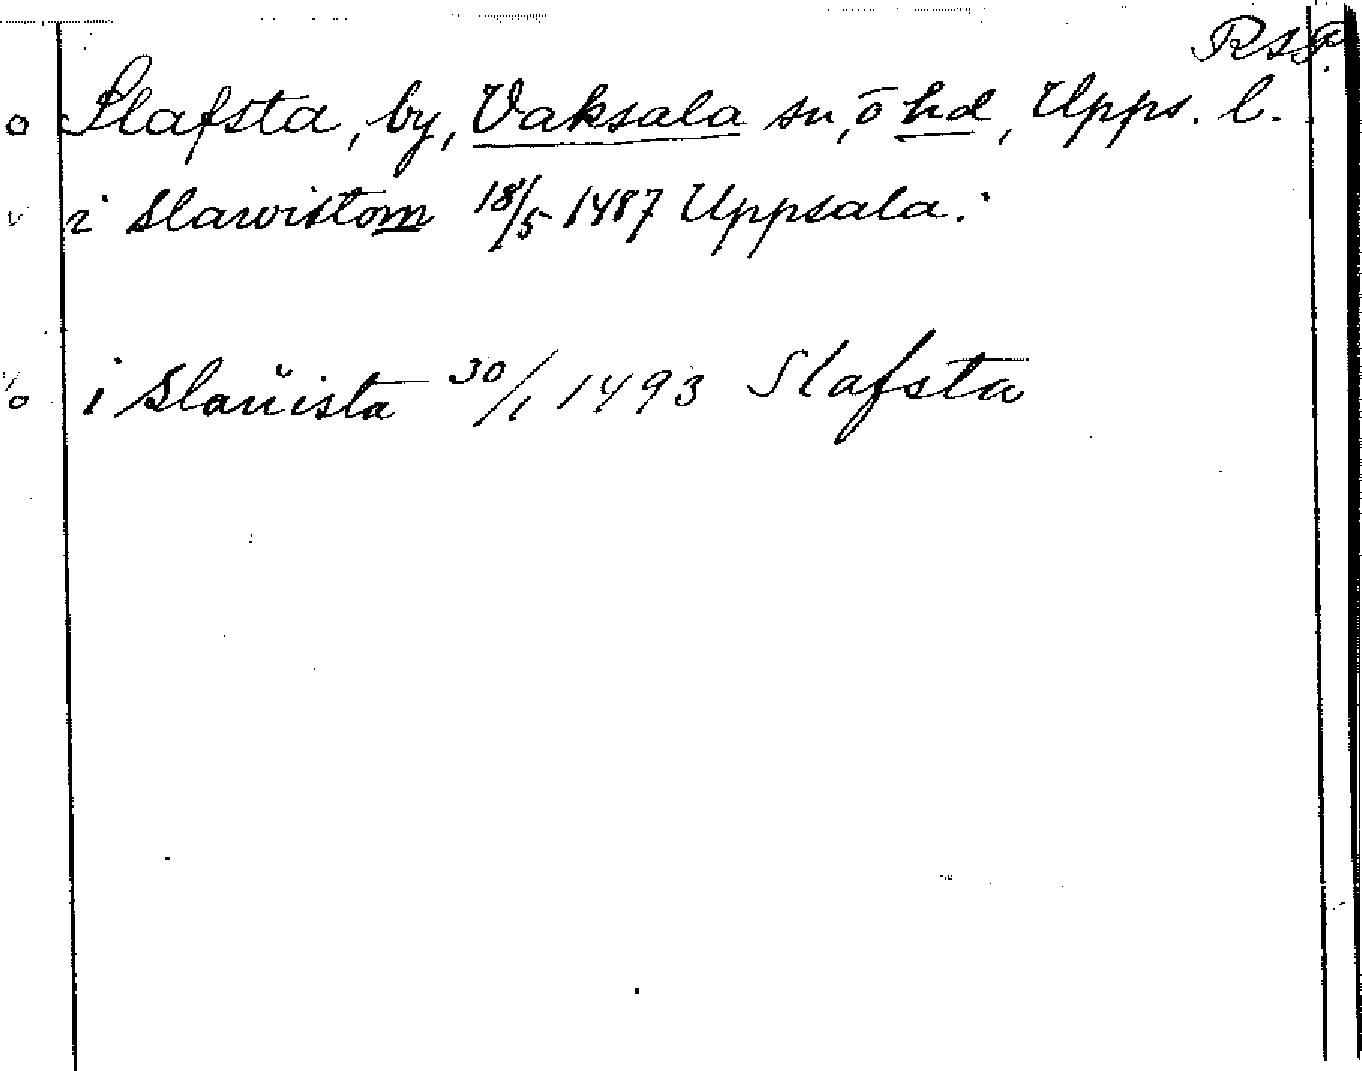 Slafsta, by, Vaksala sn, ö hd, Upps. l.
i Slawistom 18/5 1487 Uppsala.
i Slaŭista 30/1 1493 Slafsta